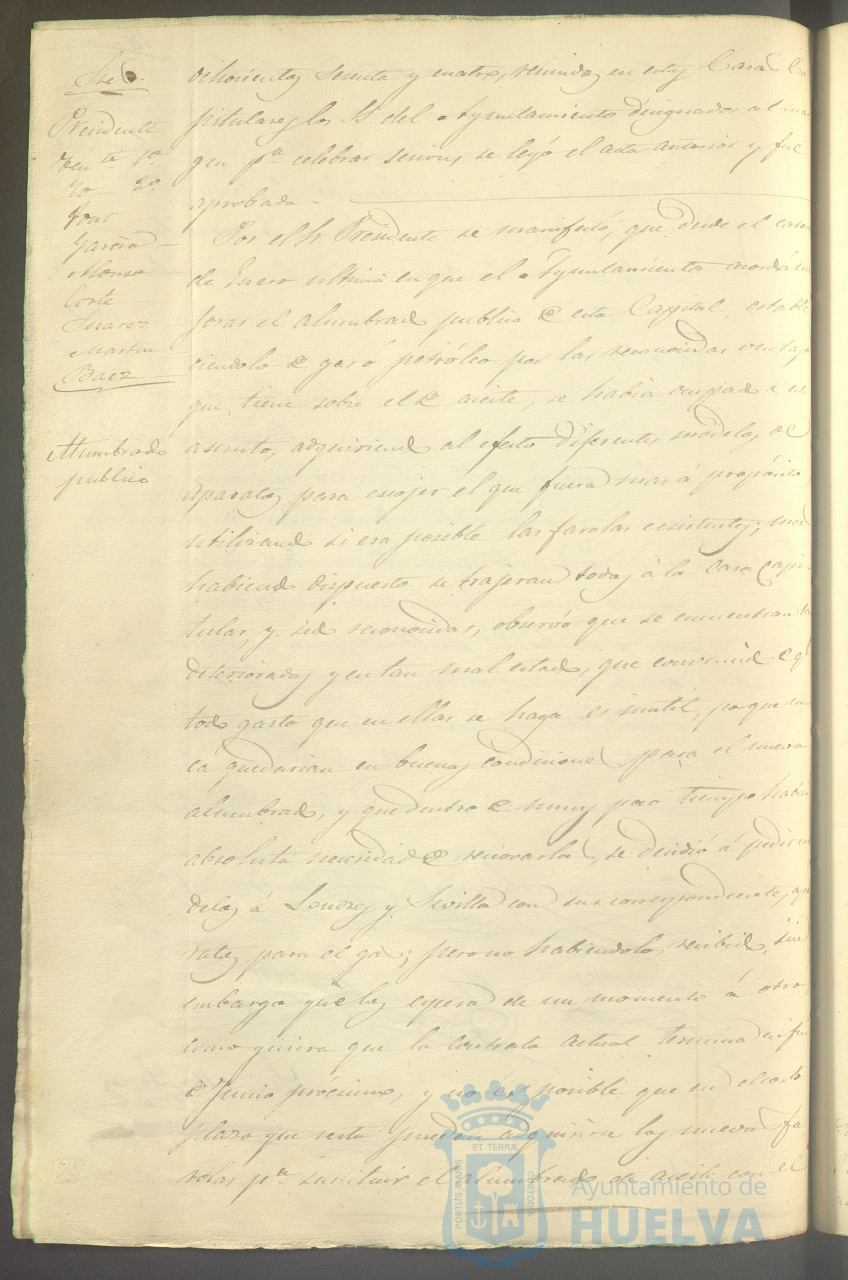 Sre⁵.
Presidente
Ten.te 1.º
Yd 2º
Font
Garcia
Alonso
Corte
Suarez
Martin
Baez
Alumbrado
publico
ochocientos sesenta y cuatro, reunidos en estas Casas Ca
pitulares los SS. del Ayuntamiento designados al mar
gen p.ª celebrar sesion, se leyó el acta anterior y fué
aprobada.
Por el Sr Presidente se manifestó, que desde el
de Enero último en que el Ayuntamiento acordó
jorar el alumbrado publico de esta Capital, estable
ciendolo de gas ó petróleo por las reconocidas ventajas
que tiene sobre el de aceite, se habia ocupado
asunto, adquiriendo al efecto diferentes modelos de
aparatos para escojer el que fuera mas á propósito,
utilizando si era posible las farolas ecsistentes;
habiendo dispuesto se trajeran todas á la casa Capi
tular, y sido reconocidas, observó que se encuentran
deterioradas y en tan mal estado, que convencido de q.e
todo gasto que en ellas se haga es inutil, porque nun
ca quedarian en buenas condiciones para el nuevo
alumbrado, y que dentro de muy poco tiempo habria
absoluta necesidad de renovarlas, se decidió á pedir mo
delos á Londres y Sevilla con sus correspondientes apa
ratos para el gas; pero no habiendolos recibido, sin
embargo que los espera de un momento á otro,
como quiera que la contrata actual termina en fin
de Junio procsimo, y no es posible que en el corto
plazo que resta puedan adquirirse las nuevas fa
rolas p.ª sustituir el alumbrado de aceite con el
PORTUS MARIS ET TERRAE CUSTODIA
Ayuntamiento de
HUELVA